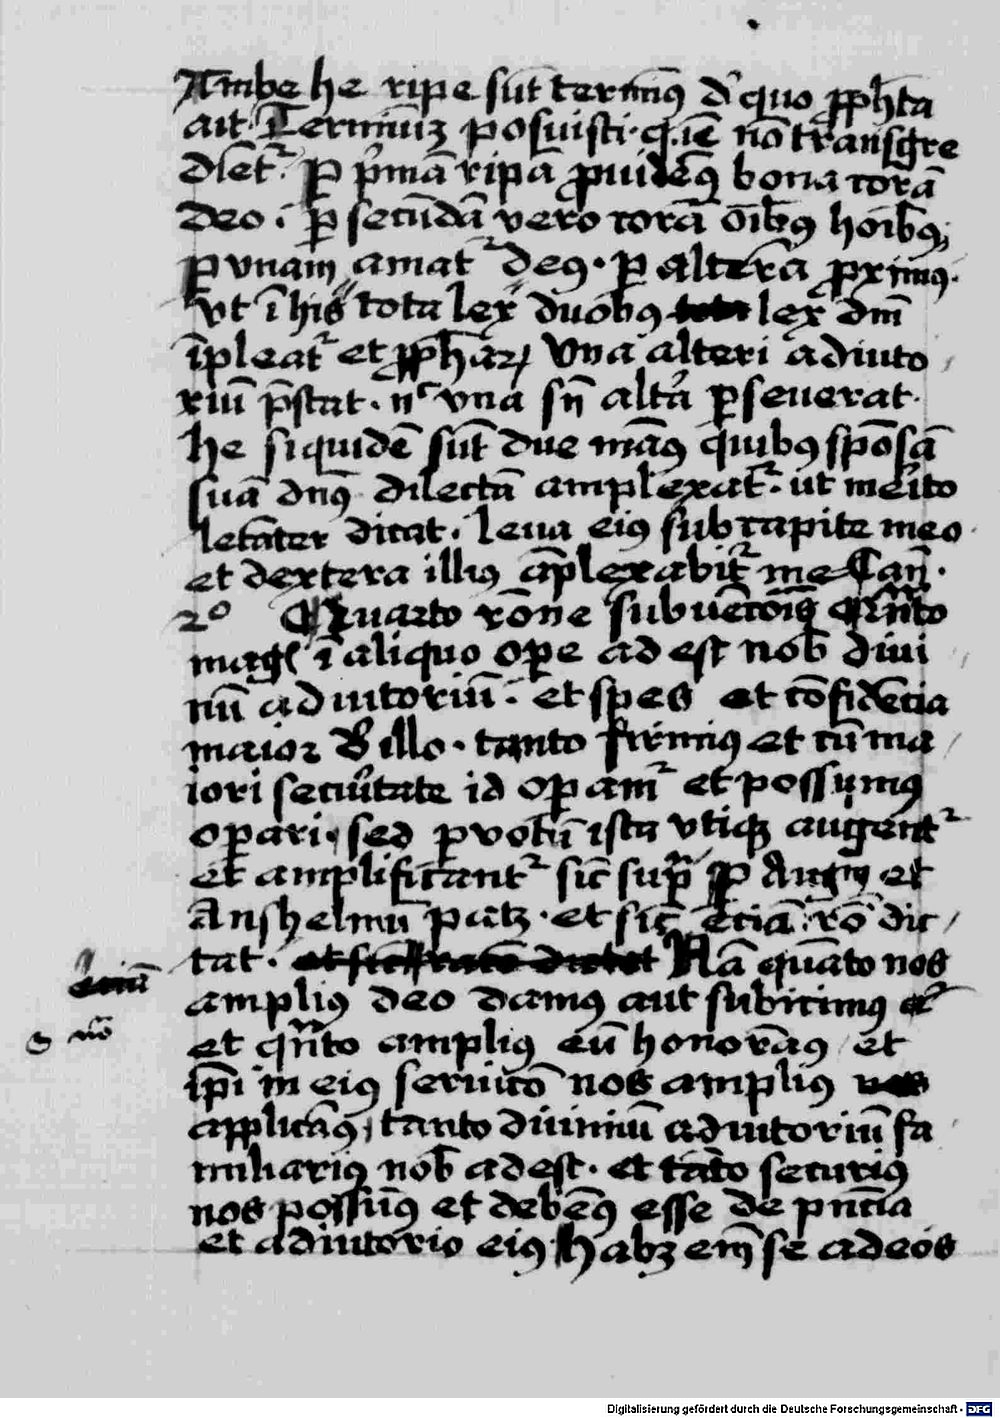 Ambe he ripe sūt termīus dͥ quo ꝓpħta
ait Terminūꝫ posuisti · q̄ iē nō transgre
diēt᷑ . ꝑ pͥmā ripā ꝓuidēꝰ bona corā
deo . ꝑ secūdā vero corā oībꝰ hoībꝰ
ꝑ vnam amat᷑ deus · ꝑ alterā ꝓximꝰ ·
vt ī his tota lex duobus lex dnī
īpleat᷑ et ꝓpħaꝝ Vna alteri adiuto
riū p̄stat . nͨ vna sn̄ altͣa ꝑseuerat ·
he siquidē sūt due māꝰ quibꝰ spōsā
suā dn̄ꝰ dilectā amplexat᷑ . ut merito
letāter dicat . leua eiꝰ sub capite meo ·
et dextera illius āplexabit᷑ me Cañ ·
2º Quarto rōne subuētōis Qn̄to
magꝭ ī aliquo oꝑe adest nob̄ diui
nū adiutoriū . et spes et cōfidēcia
maior ille . tanto firmiꝰ et cū ma
iori secuͥtate id oꝑam᷑ et possumꝰ
oꝑari . sed ꝑ votū ista vtiqꝫ augent᷑
et amplificant᷑ sic̄ supͣ ꝑ Augm̄ et
Anshelmū patꝫ . et sic̄ eciā rō dic
tat . et sic̄ racō dictat Nā quāto nos
amplius deo damꝰ aut subicimus
et qn̄to ampliꝰ eū honorāꝰ et
ip̄i in eiꝰ seruicō nos ampliꝰ
applicāꝰ , tanto diuinū adiutoriū fa
miliariꝰ nob̄ adest . et tāto securiꝰ
nos possūꝰ et debēꝰ esse de pn̄cia
et adiutorio eiꝰ habꝫ em̄ se ad eos
Digitalisierung gefördert durch die Deutsche Forschungsgemeinschaft - DFG